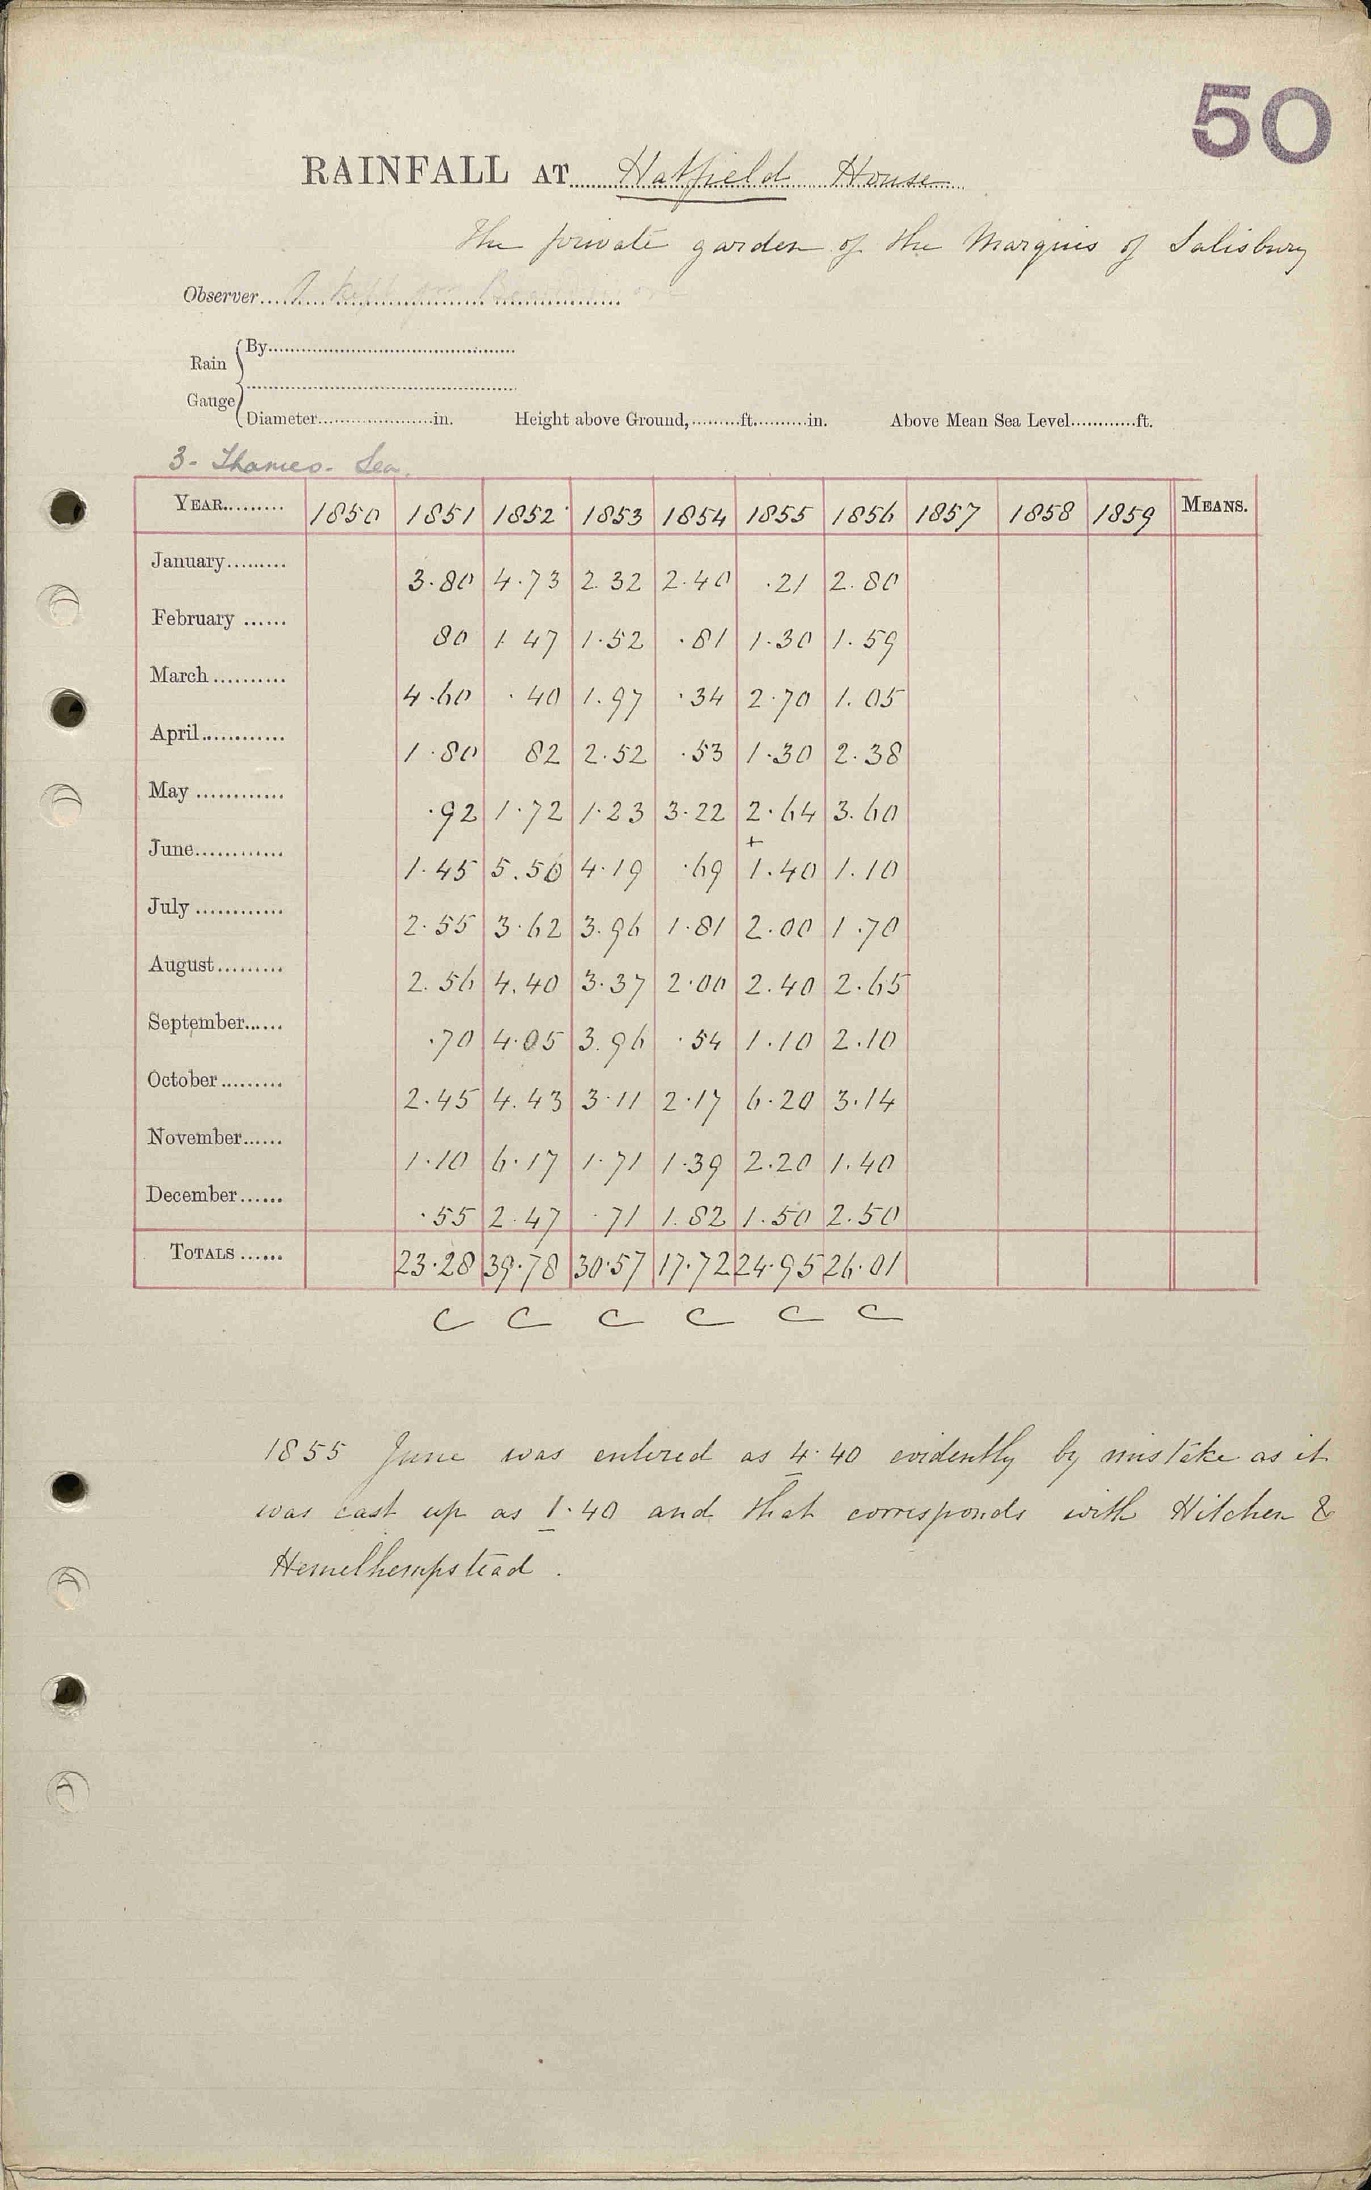 50
RAINFALL AT Hatfield House
The private garden of the Marquis of Salisbury
Observer
Rain Gauge { By
Diameter in. Height above Ground, ft. in. Above Mean Sea Level ft.
3 - Thames - Lea.
YEAR 1850 1851 1852 1853 1854 1855 1856 1857 1858 1859 MEANS.
January 3.80 4.73 2.32 2.40 .21 2.80
February 80 1.47 1.52 .81 1.30 1.59
March 4.60 .40 1.97 .34 2.70 1.05
April 1.80 82 2.52 .53 1.30 2.38
May .92 1.72 1.23 3.22 2.64 3.60
June 1.45 5.50 4.19 .69 +1.40 1.10
July 2.55 3.62 3.96 1.81 2.00 1.70
August 2.56 4.40 3.37 2.00 2.40 2.65
September .70 4.05 3.96 .54 1.10 2.10
October 2.45 4.43 3.11 2.17 6.20 3.14
November 1.10 6.17 1.71 1.39 2.20 1.40
December .55 2.47 .71 1.82 1.50 2.50
TOTALS 23.28 39.78 30.57 17.72 24.95 26.01
C C C C C C
1855 June was entered as 4.40 evidently by mistake as it
was cast up as 1.40 and that corresponds with Hitchen &
Hemelhempstead.